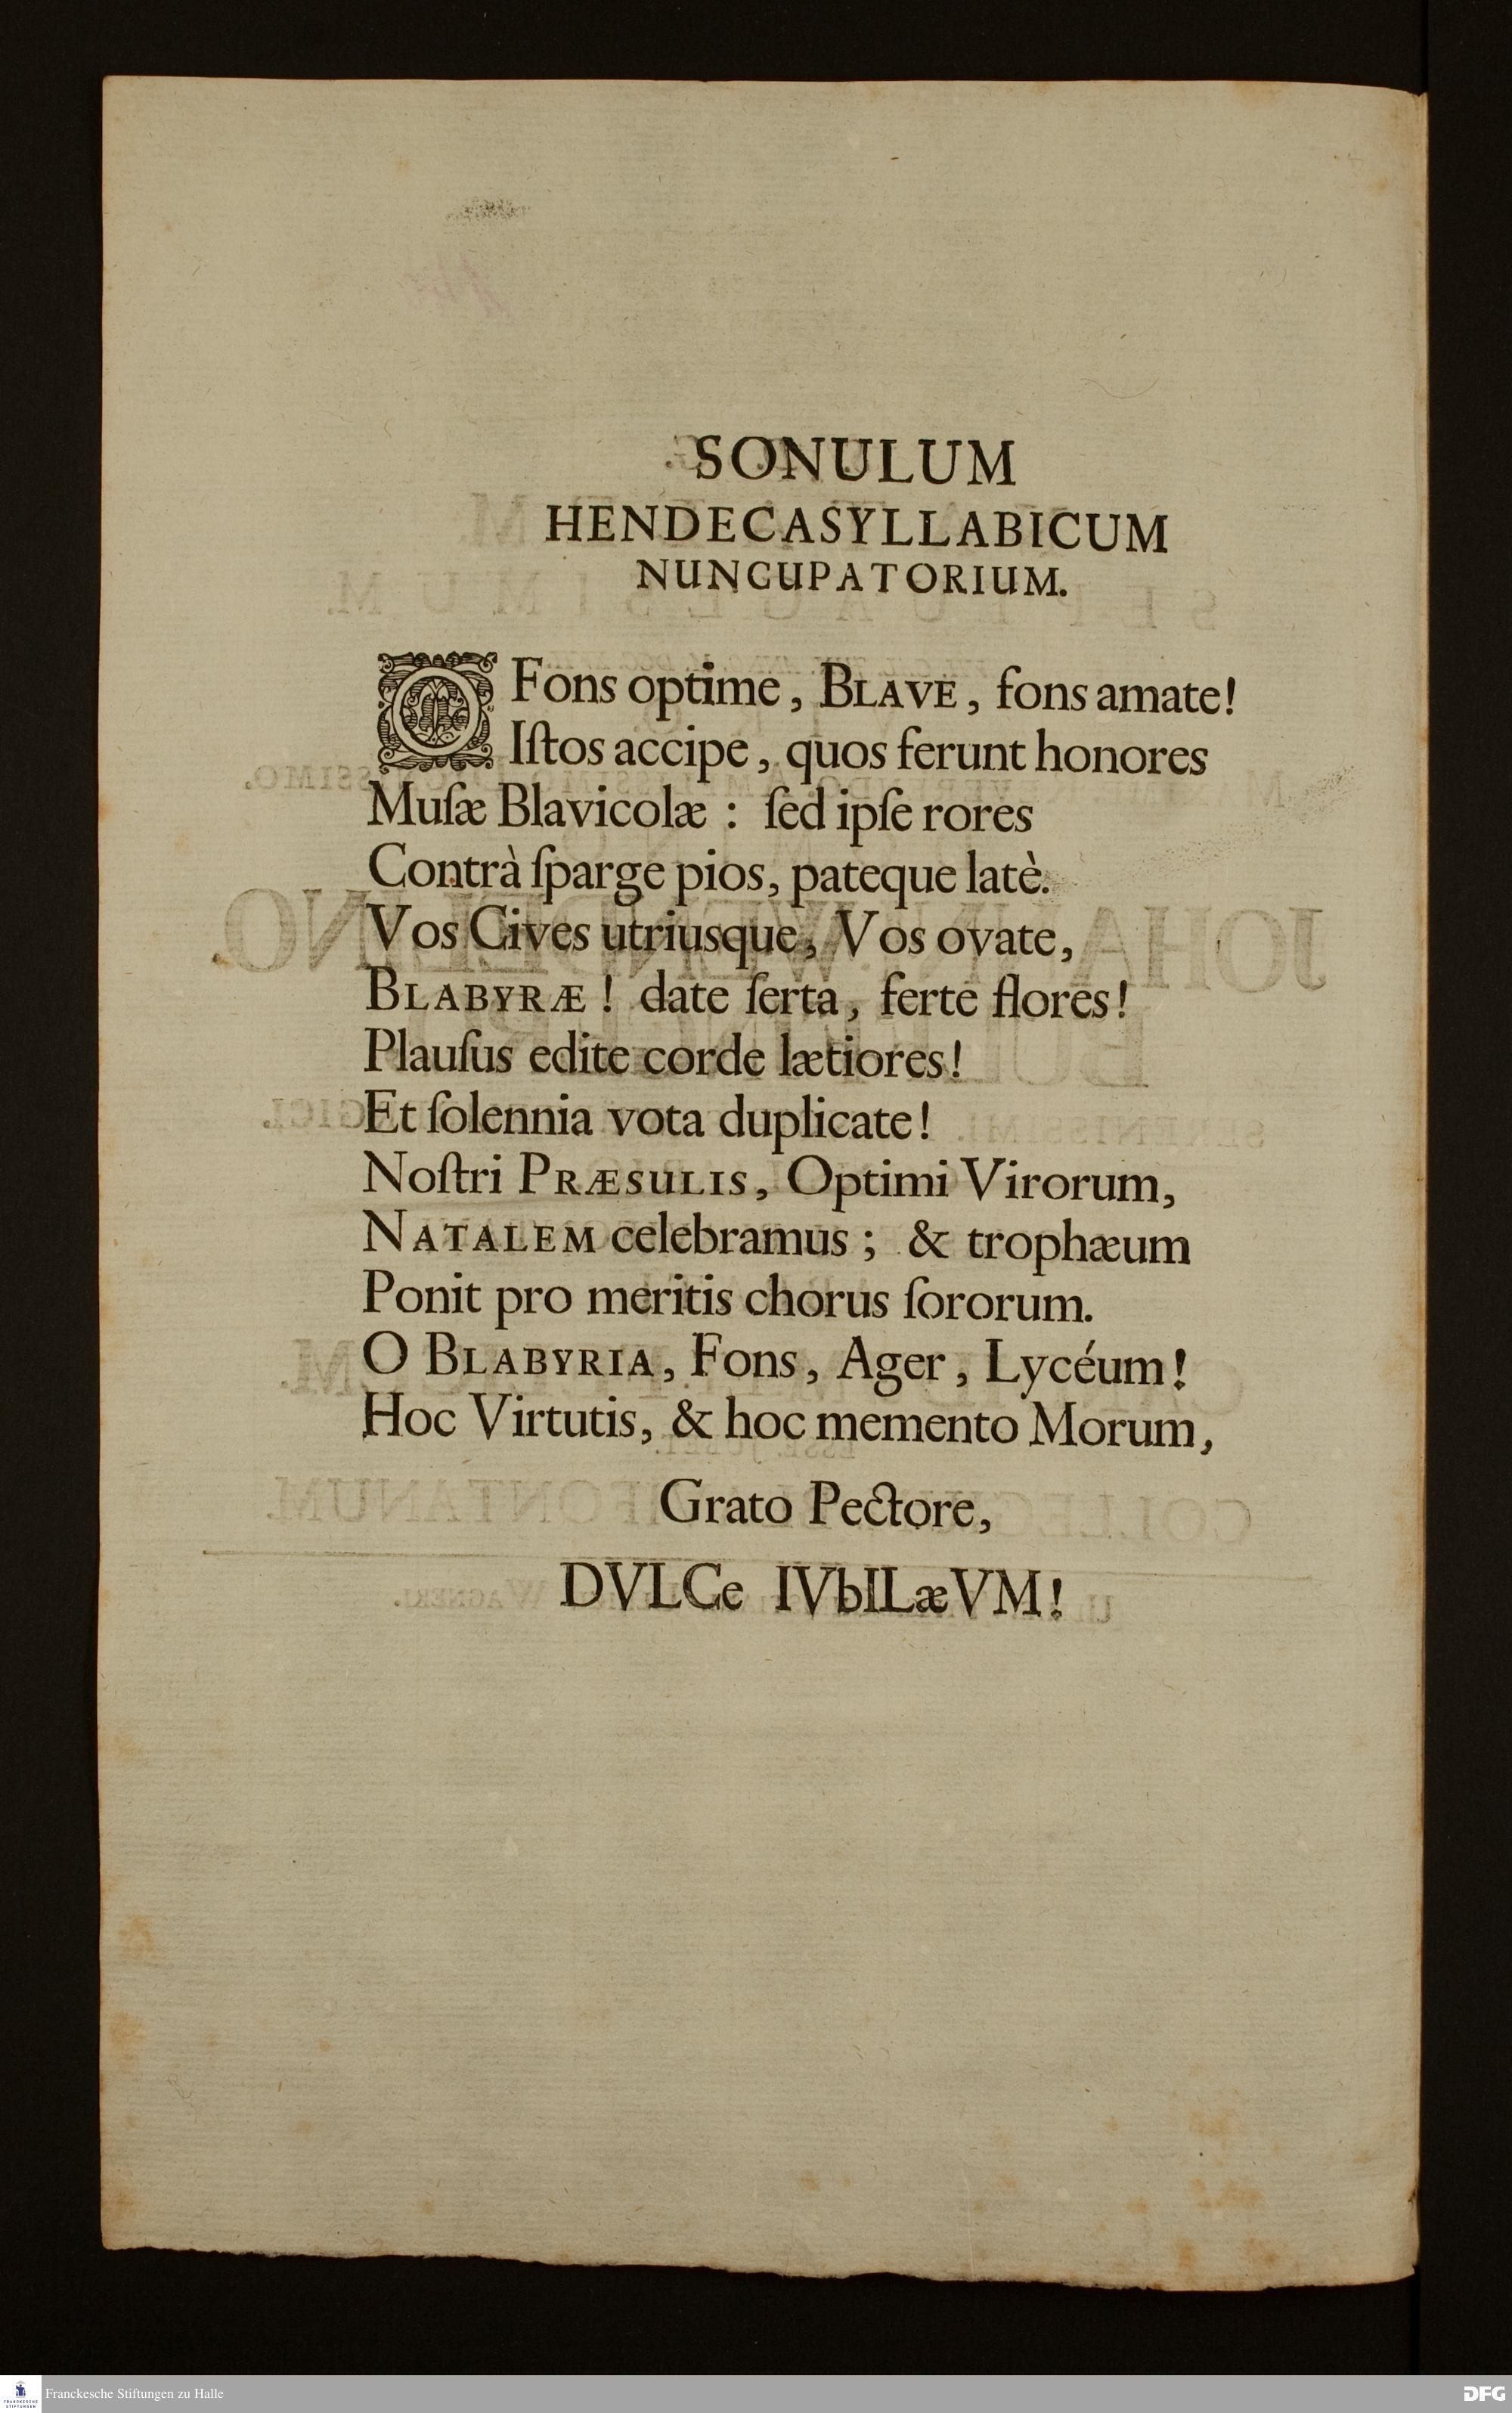 SONULUM
HENDECASYLLABICUM
NUNCUPATORIUM.
O Fons optime, BLAVE, fons amate!
Iſtos accipe, quos ferunt honores
Muſæ Blavicolæ : ſed ipſe rores
Contrà ſparge pios, pateque latè.
Vos Cives utriusque, Vos ovate,
BLABYRÆ ! date ſerta, ferte flores!
Plauſus edite corde lætiores!
Et ſolennia vota duplicate!
Noſtri PRÆSULIS, Optimi Virorum,
NATALEM celebramus ; & trophæum
Ponit pro meritis chorus ſororum.
O BLABYRIA, Fons, Ager, Lycéum!
Hoc Virtutis, & hoc memento Morum,
Grato Pectore,
DVLCe IVbILæVM!
Franckesche Stiftungen zu Halle
FRANCKESCHE STIFTUNGEN
DFG